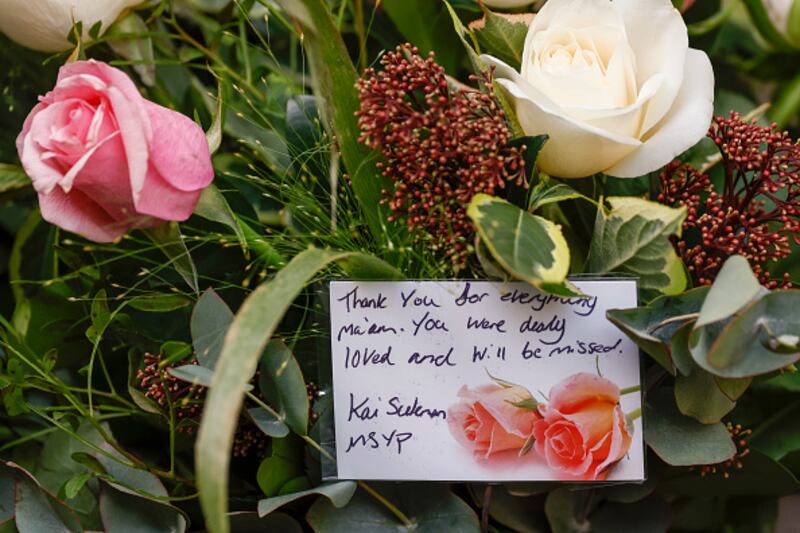 Thank You for everything
ma'am. You were dearly
loved and will be missed.
Kai
MSYP